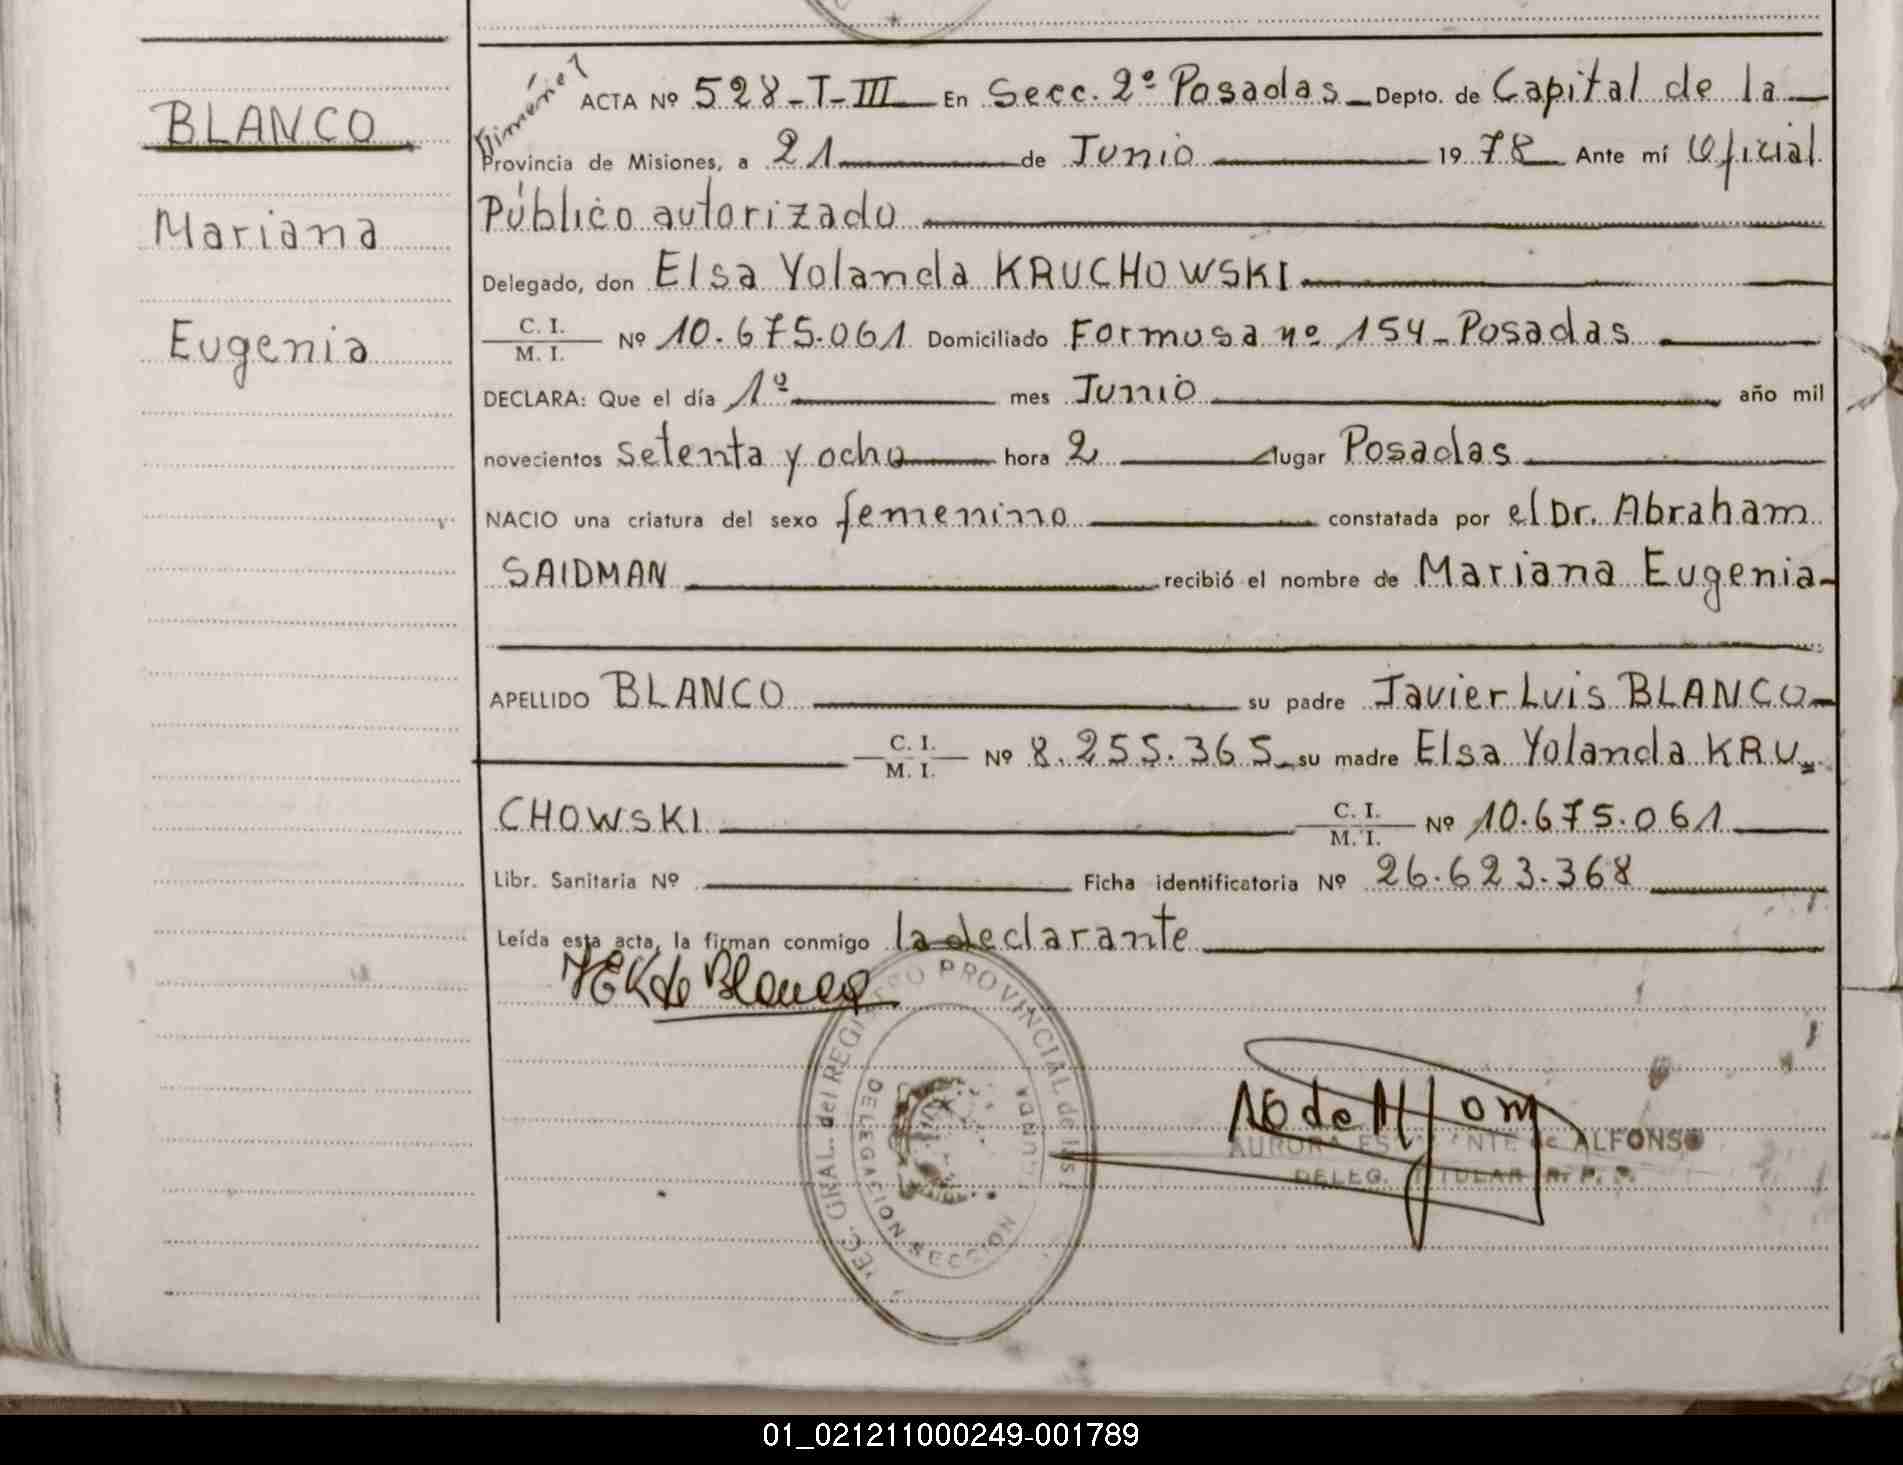 BLANCO
Mariana
Eugenia
ACTA Nº 528-T-III En Secc. 2º Posadas Depto. de Capital de la
Provincia de Misiones, a 21 de Junio 1978 Ante mí Oficial
Público autorizado
Delegado, don Elsa Yolanda KRUCHOWSKI
C. I.
M. I. Nº 10.675.061 Domiciliado Formosa nº 154-Posadas
DECLARA: Que el día 1º mes Junio año mil
novecientos setenta y ocho hora 2 lugar Posadas
NACIO una criatura del sexo femenino constatada por el Dr. Abraham
SAIDMAN recibió el nombre de Mariana Eugenia-
APELLIDO BLANCO su padre Javier Luis BLANCO-
C. I.
M. I. Nº 8.255.365 su madre Elsa Yolanda KRU=
CHOWSKI C. I.
M. I. Nº 10.675.061
Libr. Sanitaria Nº Ficha identificatoria Nº 26.623.368
Leída esta acta, la firman conmigo la declarante
de Blanco
GRAL. del REGISTRO PROVINCIAL de las
DELEGACION SECCION
AURORA de ALFONSO
DELEG. TITULAR R. P. P.
01_021211000249-001789